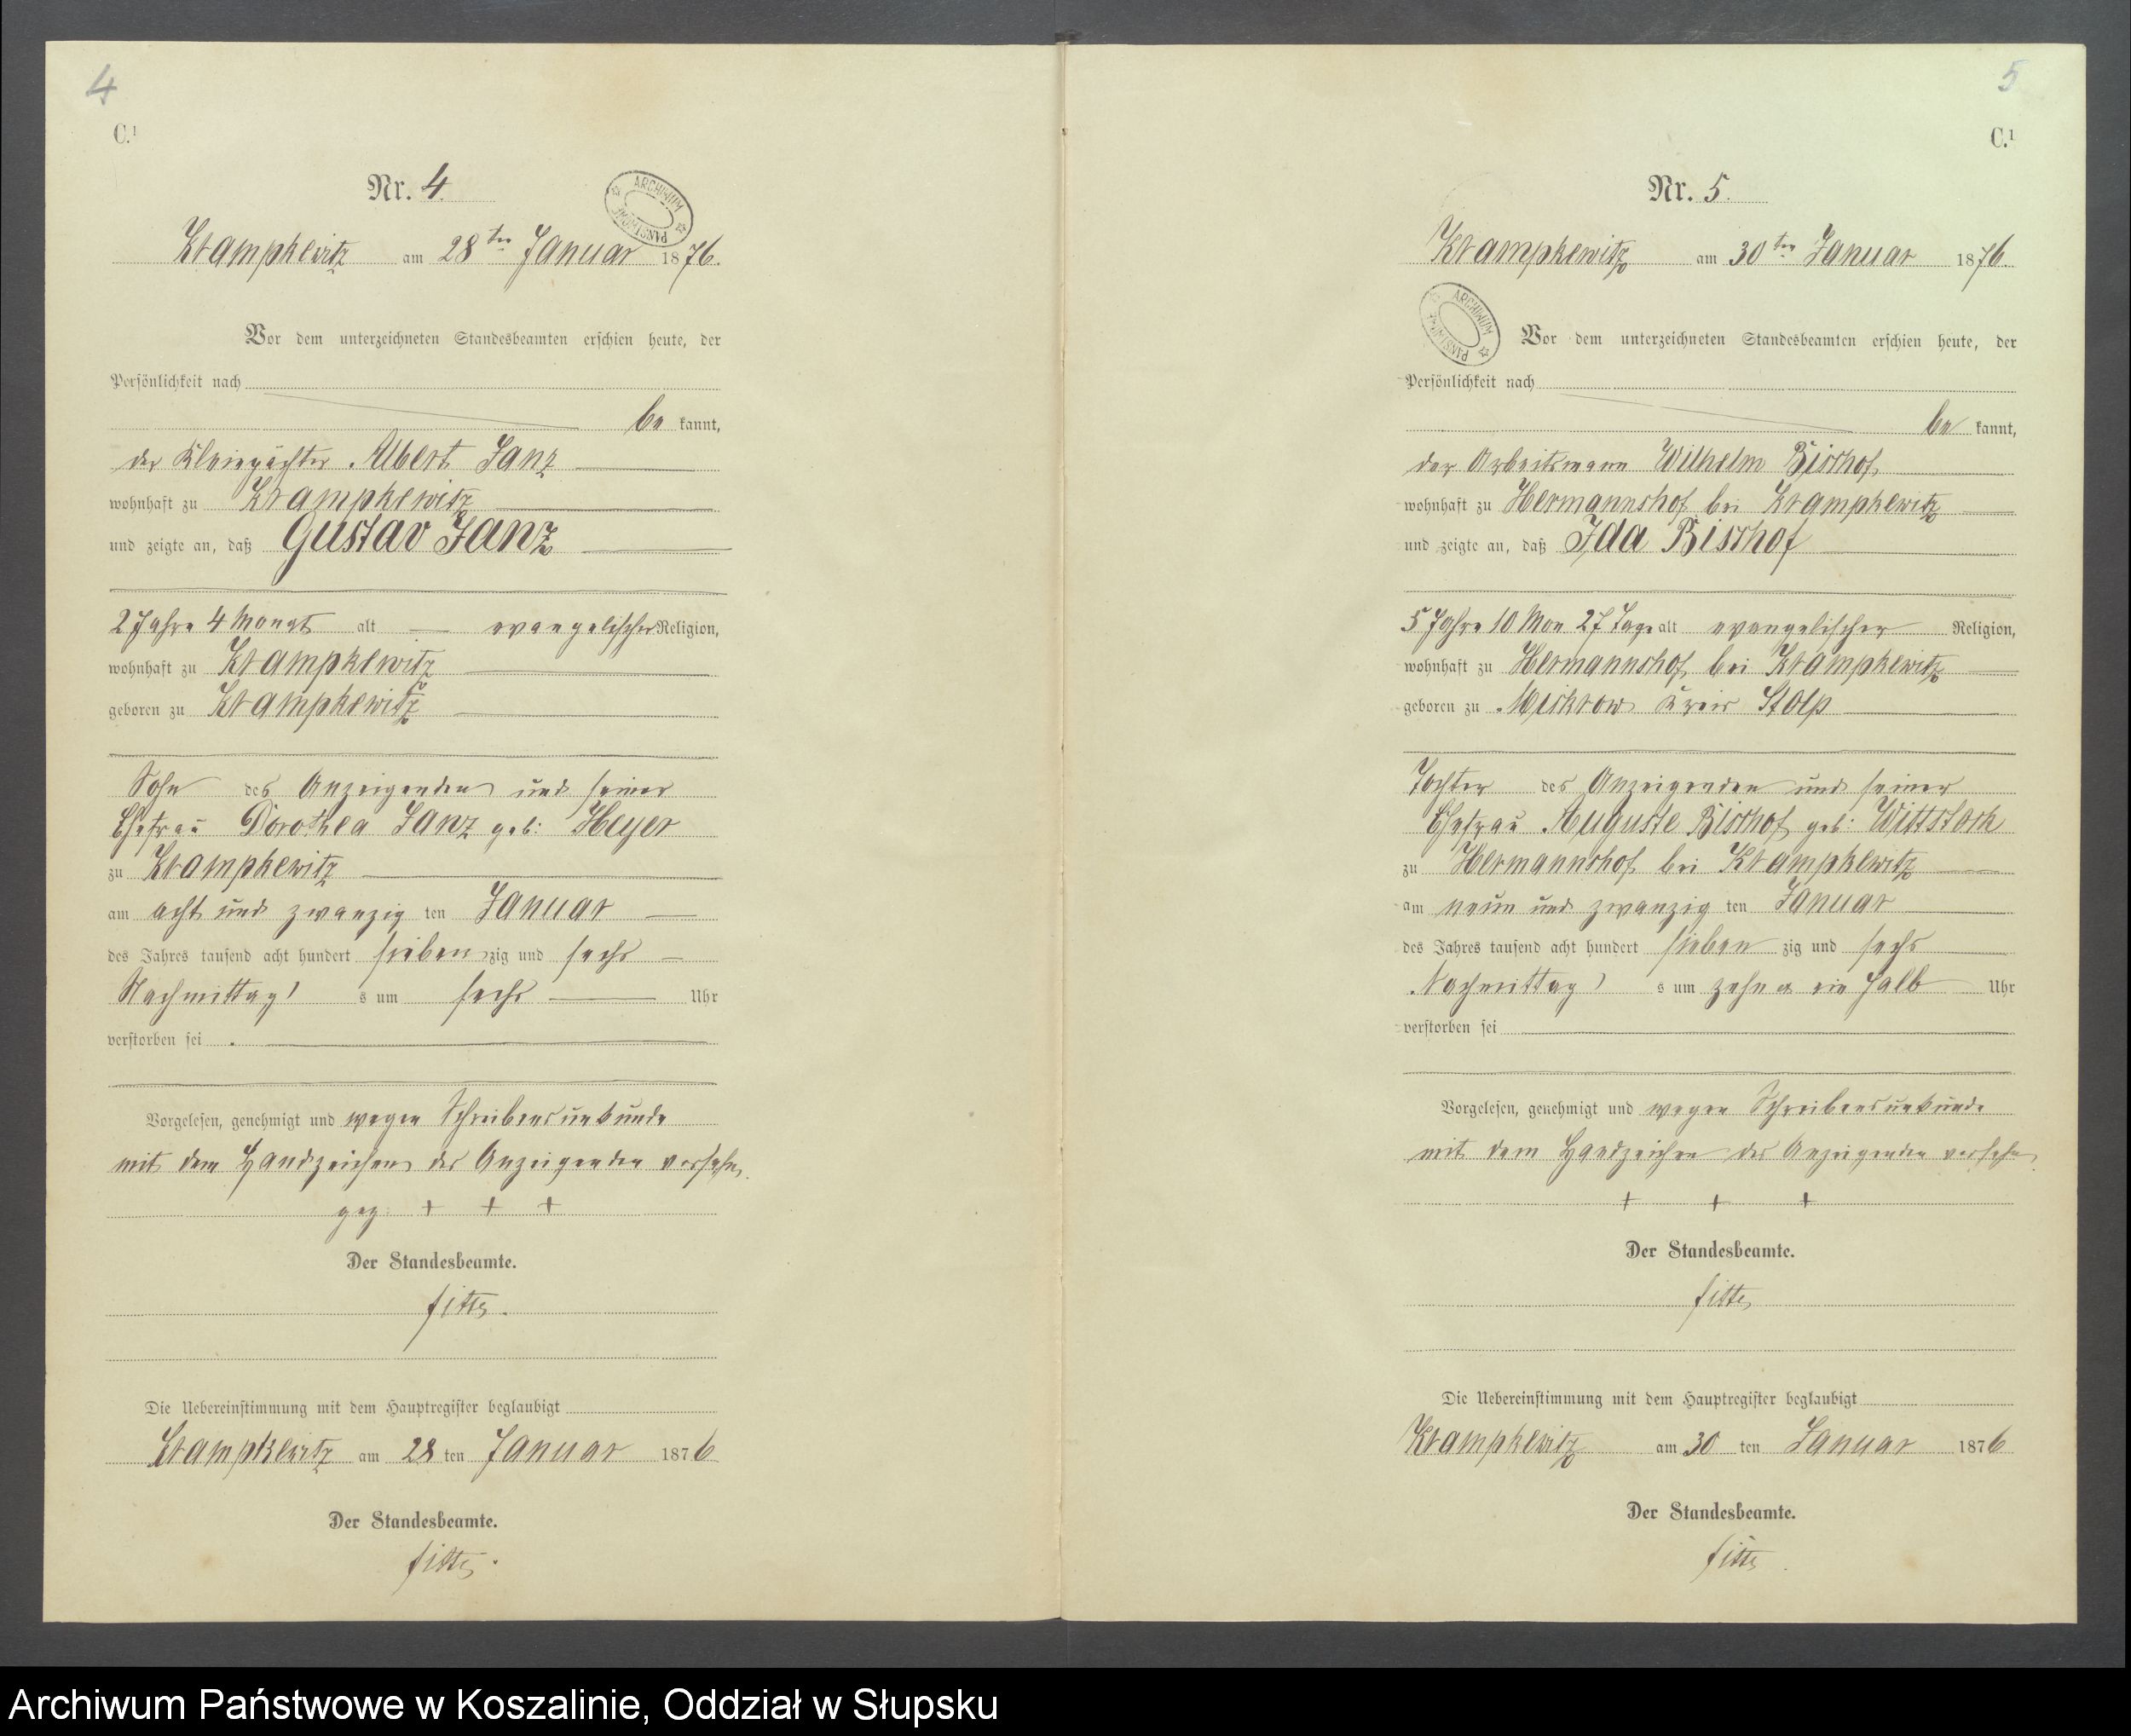 4
C.¹
Nr. 4.
ARCHIWUM PAŃSTWOWE
Krampkewitz am 28ten Januar 1876.
Vor dem unterzeichneten Standesbeamten erschien heute, der
Persönlichkeit nach
be kannt,
der Kleinpächter Albert Janz
wohnhaft zu Krampkewitz
und zeigte an, daß Gustav Janz
2 Jahre 4 Monat alt evangelischer Religion,
wohnhaft zu Krampkewitz
geboren zu Krampkewitz
Sohn des Anzeigenden und seiner
Ehefrau Dorothea Janz geb: Heyer
zu Krampkewitz
am acht und zwanzig ten Januar
des Jahres tausend acht hundert sieben zig und sechs
Nachmittag s um sechs Uhr
verstorben sei
Vorgelesen, genehmigt und wegen Schreibensunkunde
mit dem Handzeichen des Anzeigenden versehn.
gez. + + +
Der Standesbeamte.
Die Uebereinstimmung mit dem Hauptregister beglaubigt
Krampkewitz am 28 ten Januar 1876
Der Standesbeamte.
5
C.¹
Nr. 5.
Krampkewitz am 30ten Januar 1876.
ARCHIWUM PAŃSTWOWE
Vor dem unterzeichneten Standesbeamten erschien heute, der
Persönlichkeit nach
be kannt,
der Arbeitsmann Wilhelm Bisthof
wohnhaft zu Hermannshof bei Krampkewitz
und zeigte an, daß Ida Bisthof
5 Jahre 10 Mon 27 Tage alt evangelischer Religion,
wohnhaft zu Hermannshof bei Krampkewitz
geboren zu Mickrow Kreis Stolp
Tochter des Anzeigenden und seiner
Ehefrau Auguste Bisthof geb: Wittstock
zu Hermannshof bei Krampkewitz
am neun und zwanzig ten Januar
des Jahres tausend acht hundert sieben zig und sechs
Nachmittag s um zehn u ein halb Uhr
verstorben sei
Vorgelesen, genehmigt und wegen Schreibensunkunde
mit dem Handzeichen des Anzeigenden versehn
+ + +
Der Standesbeamte.
Die Uebereinstimmung mit dem Hauptregister beglaubigt
Krampkewitz am 30 ten Januar 1876
Der Standesbeamte.
Archiwum Państwowe w Koszalinie, Oddział w Słupsku